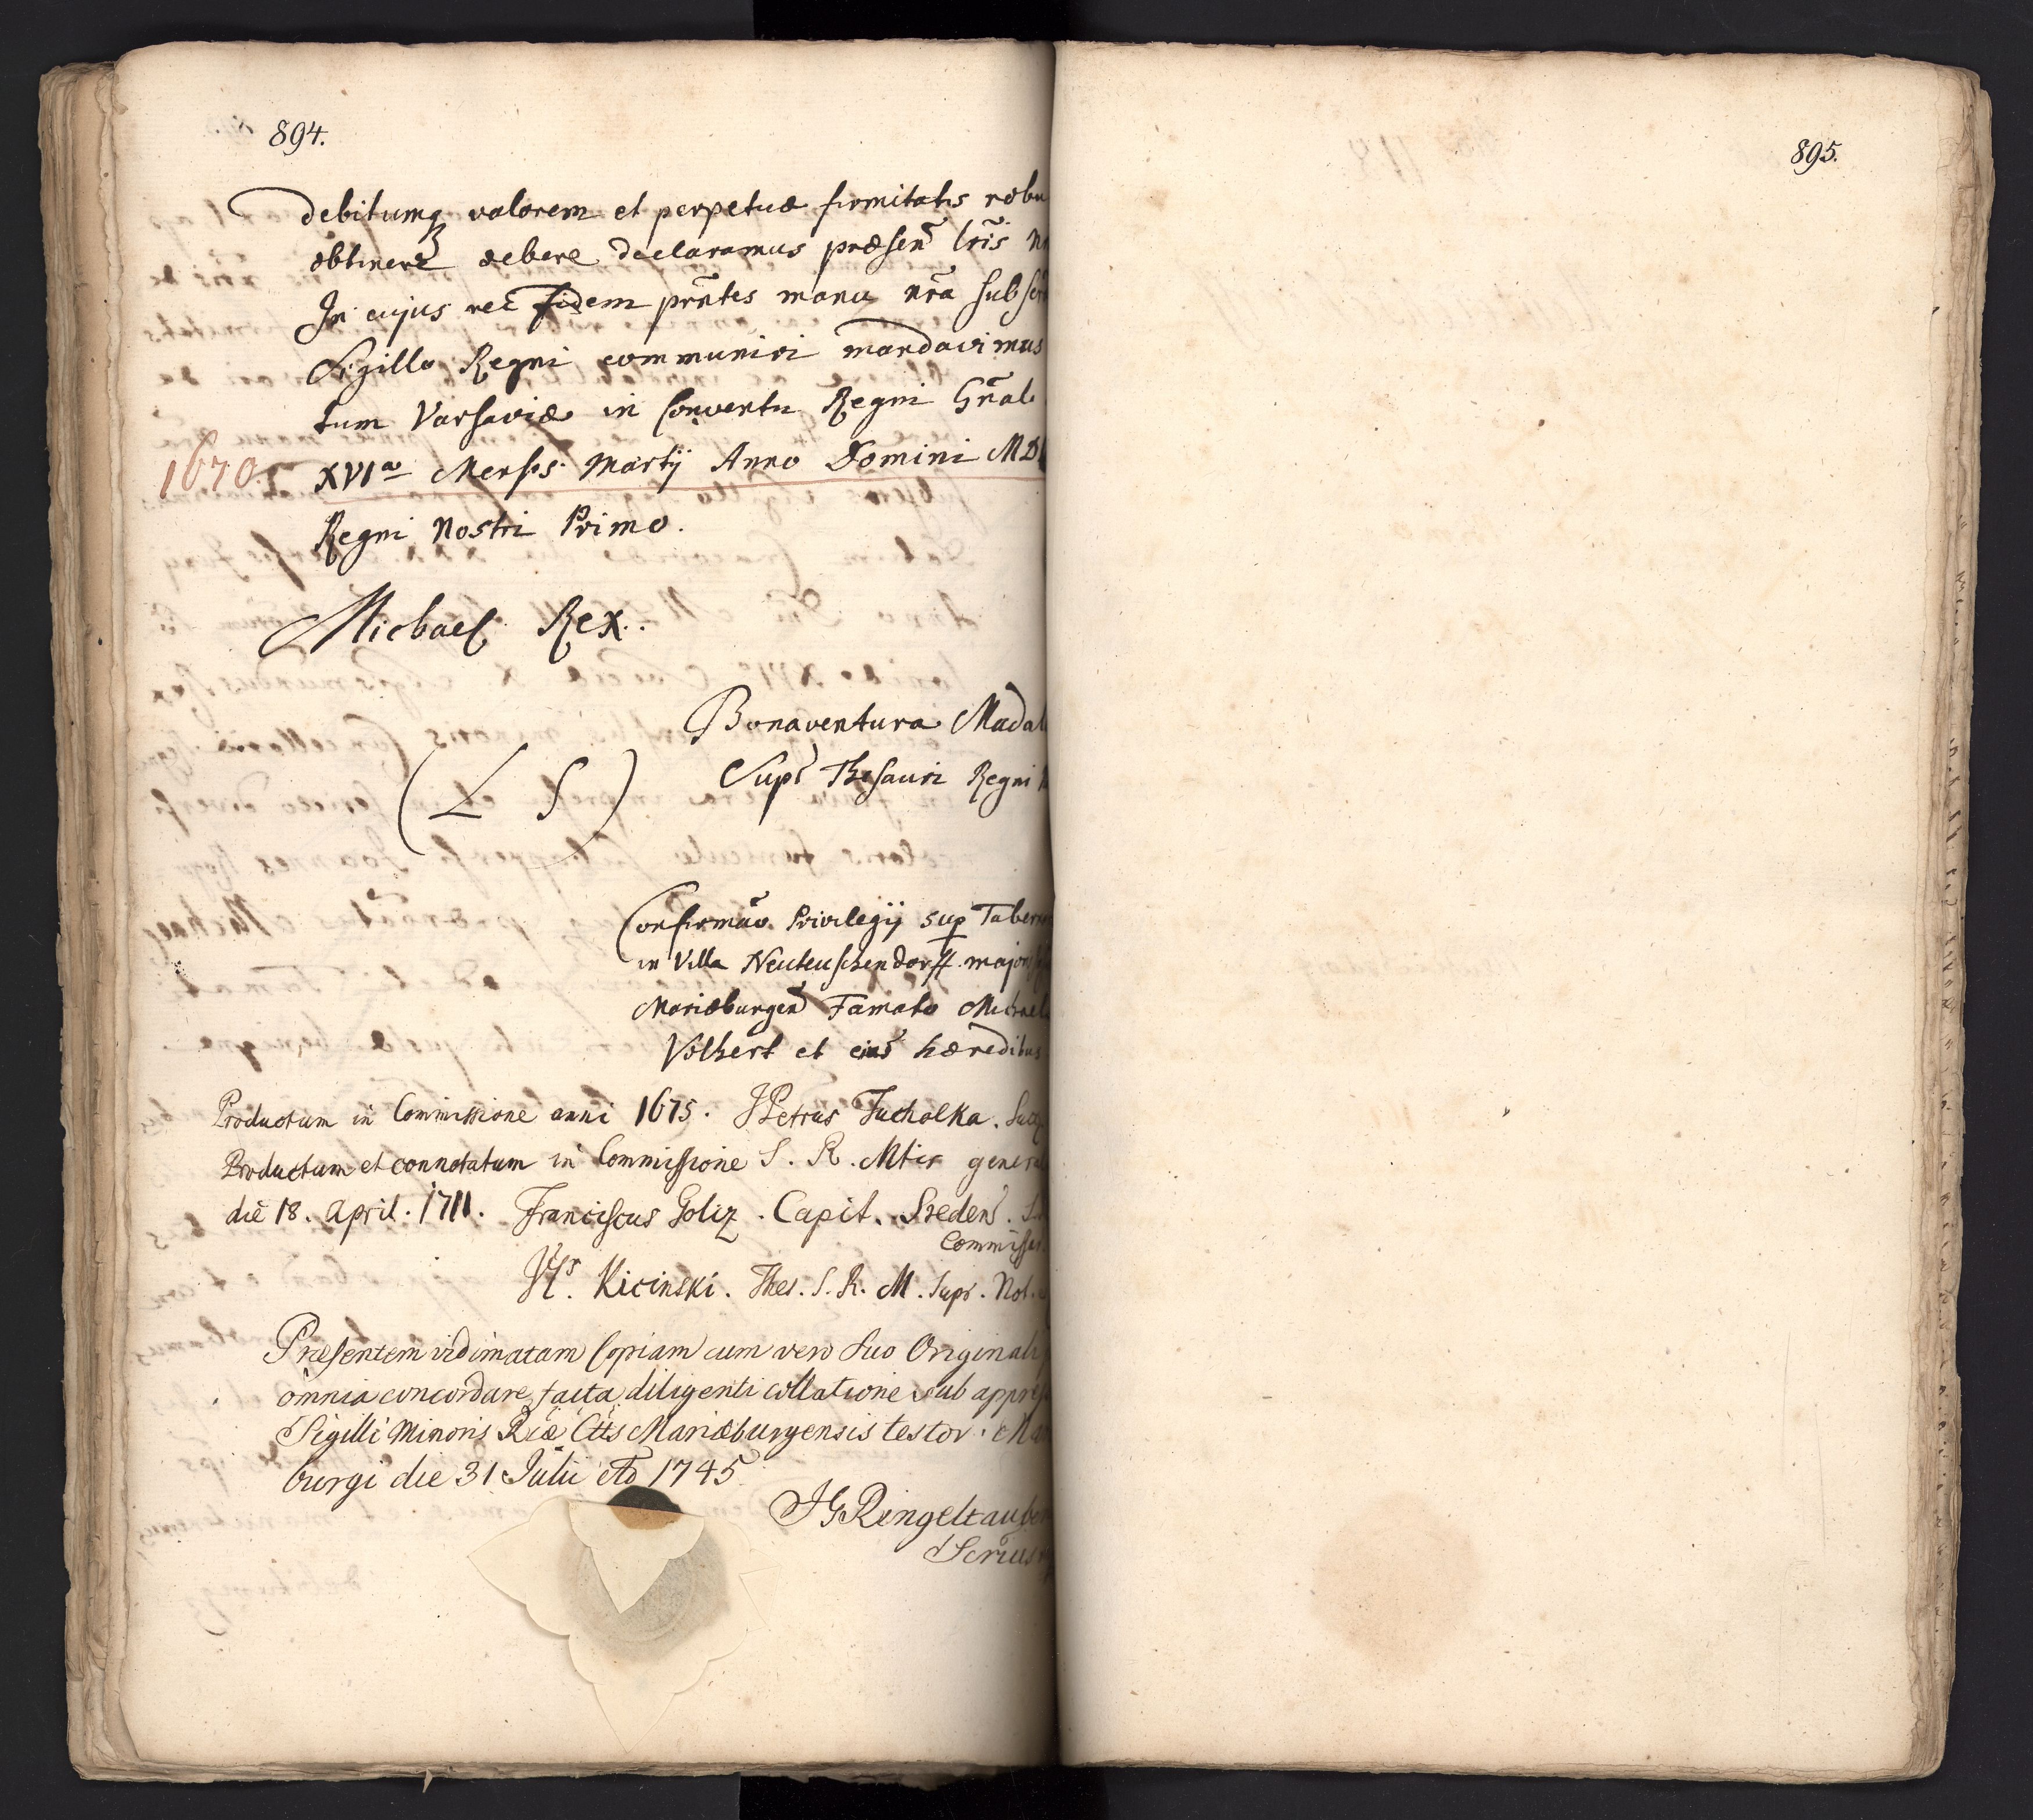 894.
debitumq valorem et perpetuæ firmitatis robu
obtinere debere declaramus præsen̄ lr̄is
In cujus rei fidem prn̄tes manu nr̄a subscr
Sigillo Regni communiri mandavimus
tum Varsaviæ in Conventu Regni Gn̄al
1670. XVIa Mensis Martij Anno Domini MD
Regni Nostri Primo.
Michael Rex.
Bonaventura Madal
(L S)
Supr Thesauri Regni
Confirmāo Privilegij sup Tabern
in Villa Neuteuschendorff majori
Mariæburgen̄ Famato Michael
Volhert et eius hæredibus
Productum in Commissione anni 1675. JPetrus Tucholka.
Productum et connotatum in Commissione S. R. Mtis genera
die 18. April. 1711. Franciscus Goltz. Capit. Sreden̄.
Commissar
Kicinski. Thes. S. R. M. Supr. Not.
Præsentem vidimatam Copiam cum vero suo Originali
omnia concordare, facta diligenti collatione sub appres
Sigilli Minoris Riæ Cttis Mariæburgensis testor. Ma
burgi die 31 Julii Ao 1745
JGRingeltaube
895.